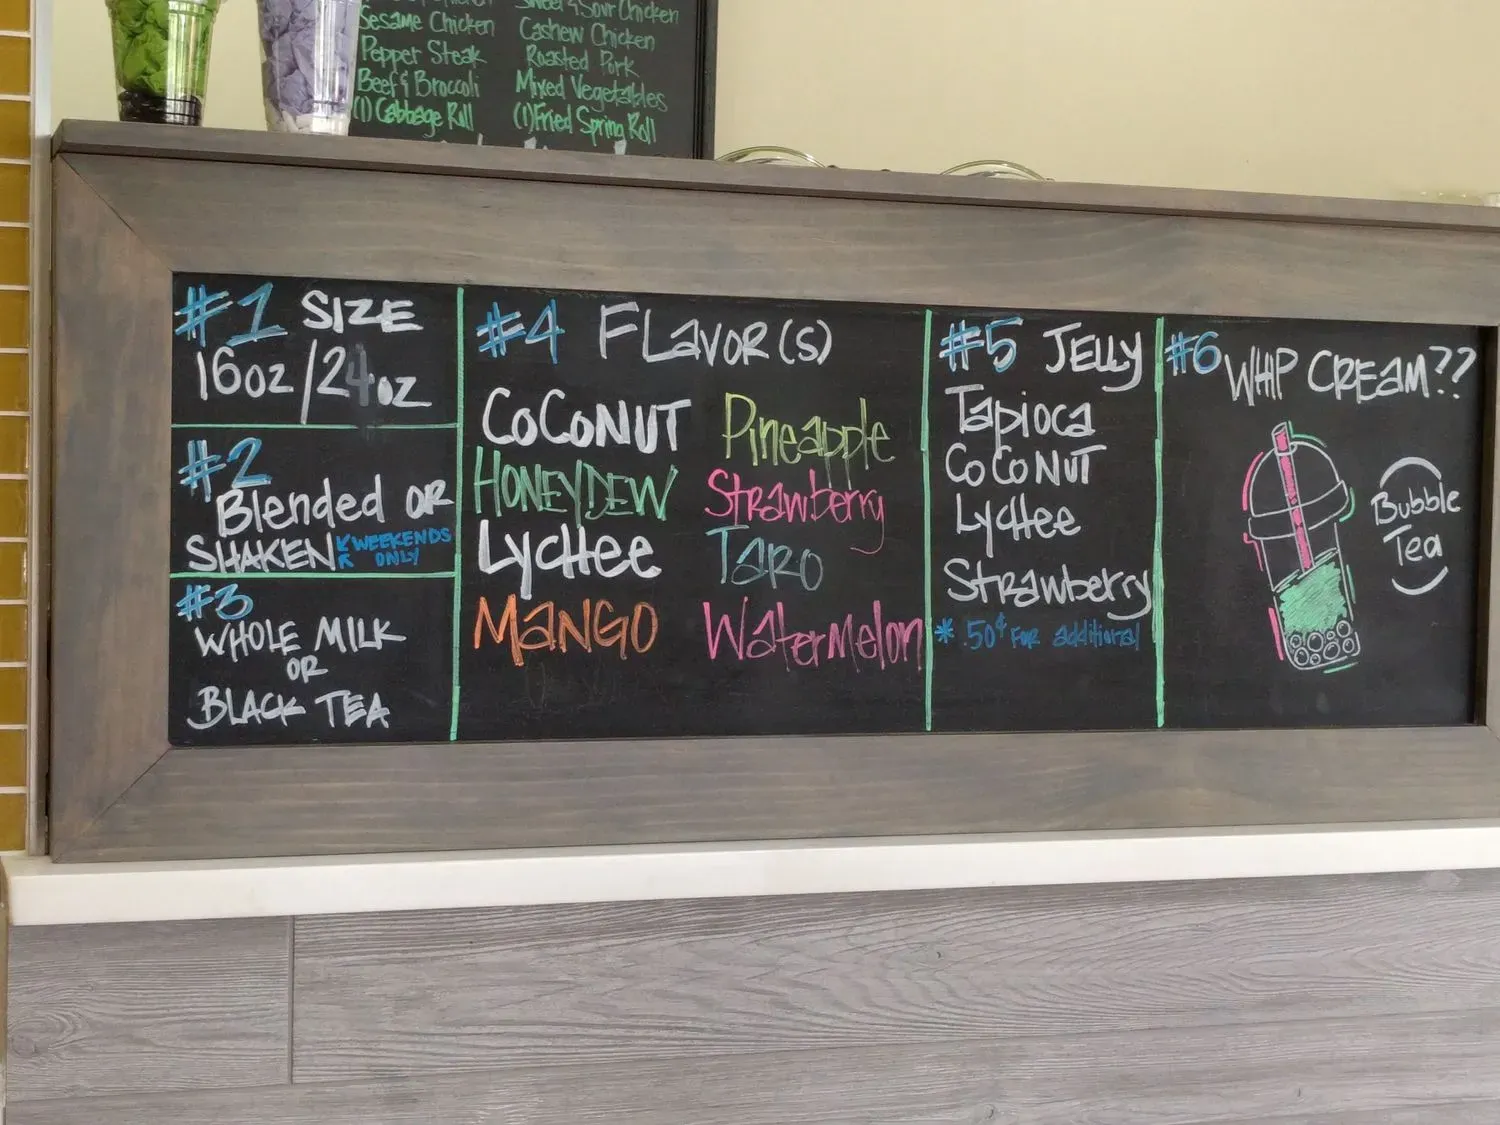 Sesame Chicken
Pepper Steak
Beef & Broccoli
(1) Cabbage Roll
Sweet & Sour Chicken
Cashew Chicken
Roasted Pork
Mixed Vegetables
(1) Fried Spring Roll
#1 SIZE
16oz/24oz
#2
Blended OR
SHAKEN
WEEKENDS
ONLY
#3
WHOLE MILK
OR
BLACK TEA
#4 FLavoR(s)
CoCoNUT
HONEYDEW
Lychee
MaNGO
Pineapple
Strawberry
TaRO
Watermelon
#5 JELLY
Tapioca
CoCoNUT
Lychee
Strawberry
* .50¢ FOR additional
#6 WHIP CREaM??
Bubble
Tea